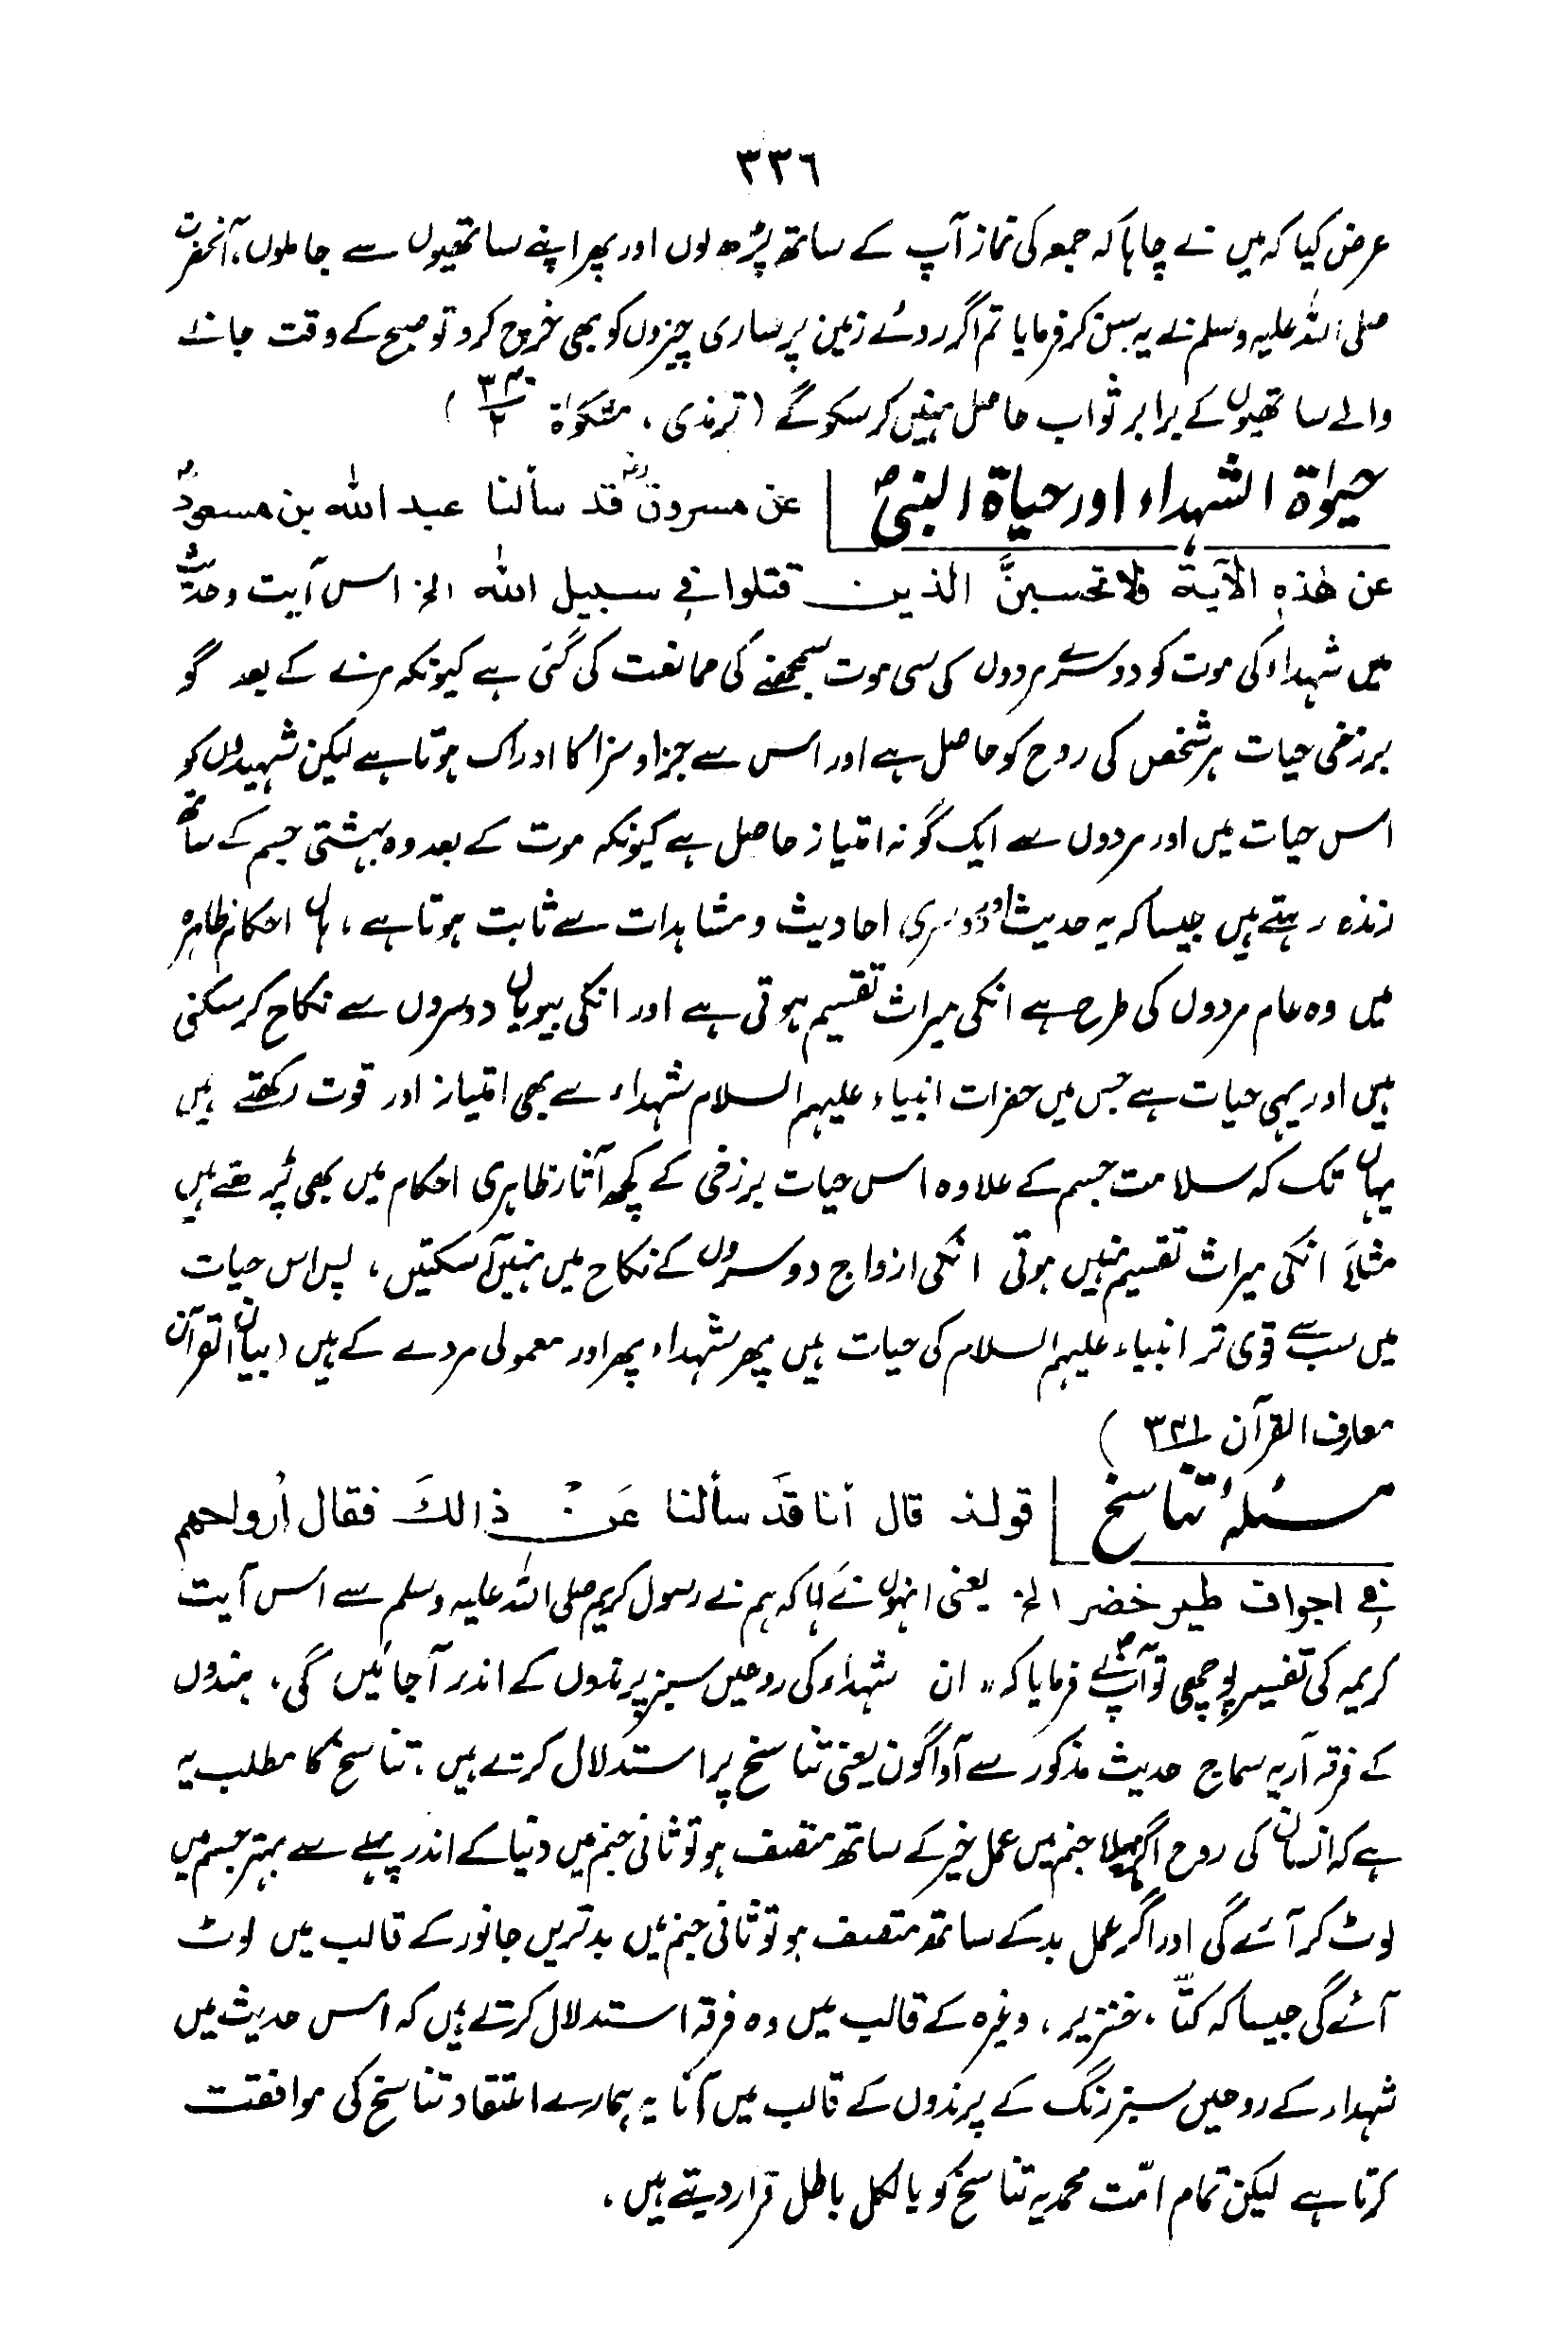 ٣٣٦
عرض کیا کہ میں نے چاہا کہ جمعہ کی نماز آپ کے ساتھ پڑھ لوں اور پھر اپنے ساتھیوں سے جا ملوں، آنحضرت
صلی اللہ علیہ وسلم نے یہ سن کر فرمایا تم اگر روئے زمین پر ساری چیزوں کو بھی خرچ کرو تو صبح کے وقت جانے
والے ساتھیوں کے برابر ثواب حاصل نہیں کر سکو گے (ترمذی، مشکوٰۃ ٣٤٠/٢)
حیوٰۃ الشہداء اور حیاۃ النبیؐ عن مسروقؒ قد سألنا عبد اللہ بن مسعودؓ
عن ھٰذہ الآیۃ فلا تحسبنَّ الذین قتلوا فی سبیل اللہ الخ اس آیت وحدیث
میں شہداء کی موت کو دوسرے مردوں کی سی موت سمجھنے کی ممانعت کی گئی ہے کیونکہ مرنے کے بعد گو
برزخی حیات ہر شخص کی روح کو حاصل ہے اور اس سے جزا و سزا کا ادراک ہوتا ہے لیکن شہیدوں کو
اس حیات میں اور مردوں سے ایک گونہ امتیاز حاصل ہے کیونکہ موت کے بعد وہ بہشتی جسم کے ساتھ
زندہ رہتے ہیں جیسا کہ یہ حدیث اور دوسری احادیث ومشاہدات سے ثابت ہوتا ہے، ہاں احکام ظاہرہ
میں وہ عام مردوں کی طرح ہے انکی میراث تقسیم ہوتی ہے اور انکی بیویاں دوسروں سے نکاح کر سکتی
ہیں اور یہی حیات ہے جس میں حضرات انبیاء علیہم السلام شہداء سے بھی امتیاز اور قوت رکھتے ہیں
یہاں تک کہ سلامت جسم کے علاوہ اس حیات برزخی کے کچھ آثار ظاہری احکام میں بھی پڑھتے ہیں
مثلاً انکی میراث تقسیم نہیں ہوتی انکی ازواج دوسروں کے نکاح میں نہیں آسکتیں، پس اس حیات
میں سب سے قوی تر انبیاء علیہم السلام کی حیات ہیں پھر شہداء پھر اور معمولی مردے کے ہیں (بیان القرآن
معارف القرآن )
مسئلۂ تناسخ قولہ قال أنا قَد سألنا عَنْ ذالكَ فقال أرواحھم
فی اجواف طیر خضر الخ یعنی انہوں نے کہا کہ ہم نے رسول کریم صلی اللہ علیہ وسلم سے اس آیت
کریمہ کی تفسیر پوچھی تو آپؐ نے فرمایا کہ " ان شہداء کی روحیں سبز پرندوں کے اندر آجائیں گی، ہندوں
کے فرقہ آریہ سماج حدیث مذکور سے آواگون یعنی تناسخ پر استدلال کرتے ہیں، تناسخ کا مطلب یہ
ہے کہ انسان کی روح اگر پہلا جنم میں عمل خیر کے ساتھ متصف ہو تو ثانی جنم میں دنیا کے اندر پہلے سے بہتر جسم میں
لوٹ کر آئے گی اور اگر عمل بد کے ساتھ متصف ہو تو ثانی جنم میں بدترین جانور کے قالب میں لوٹ
آئے گی جیسا کہ کتّا، خنزیر، وغیرہ کے قالب میں وہ فرقہ استدلال کرتے ہیں کہ اس حدیث میں
شہداء کے روحیں سبز رنگ کے پرندوں کے قالب میں آنا یہ ہمارے اعتقاد تناسخ کی موافقت
کرتا ہے لیکن تمام امّت محمدیہ تناسخ کو بالکل باطل قرار دیتے ہیں،